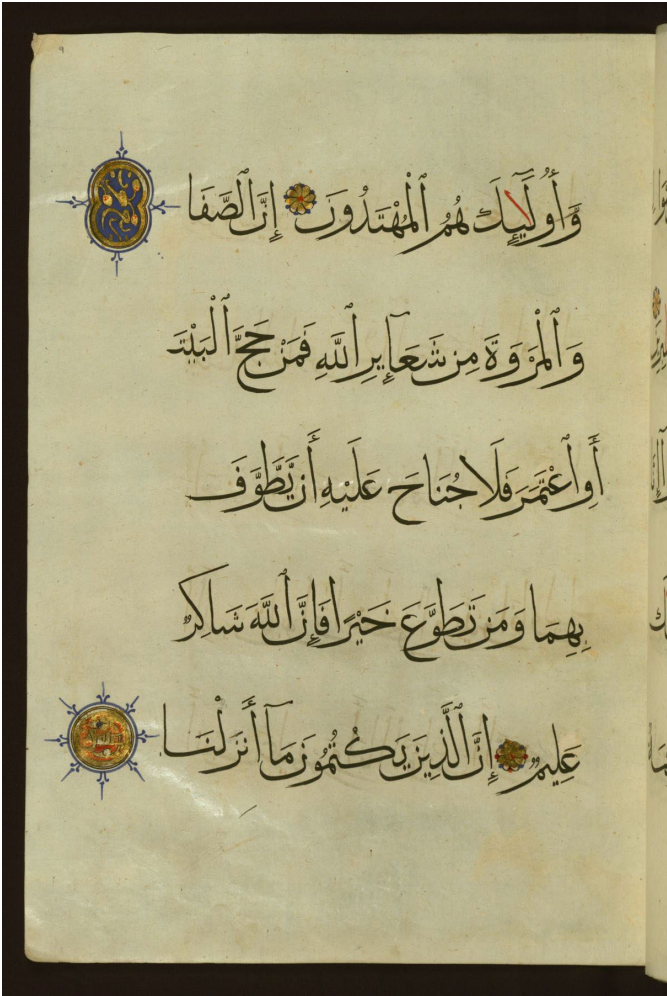 وَأُولَٰٓئِكَ هُمُ ٱلْمُهْتَدُونَ إِنَّ ٱلصَّفَا
وَٱلْمَرْوَةَ مِن شَعَآئِرِ ٱللَّهِ فَمَنْ حَجَّ ٱلْبَيْتَ
أَوِ ٱعْتَمَرَ فَلَا جُنَاحَ عَلَيْهِ أَن يَطَّوَّفَ
بِهِمَا وَمَن تَطَوَّعَ خَيْرًا فَإِنَّ ٱللَّهَ شَاكِرٌ
عَلِيمٌ إِنَّ ٱلَّذِينَ يَكْتُمُونَ مَآ أَنزَلْنَا